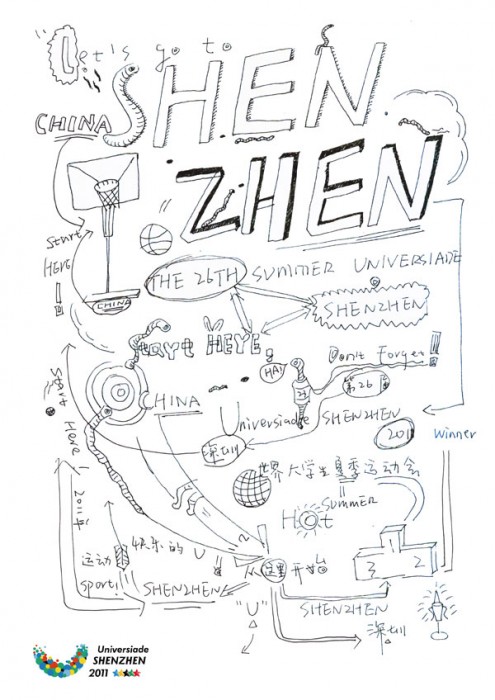 Let's go to
SHEN
CHINA
ZHEN
Start
HERE!
CHINA
THE 26TH SUMMER UNIVERSIADE
SHENZHEN
START HEYE!
Don't Forget!!!
HA!
第26
CHINA
Universiade SHENZHEN
深圳
2011 winner
Sport Here!
2011年
世界大学生夏季运动会
SUMMER
Hot
快乐的U
运动
sport!
从这里开始
1
3 2
SHENZHEN
"U"
SHENZHEN
深圳
Universiade
SHENZHEN
2011